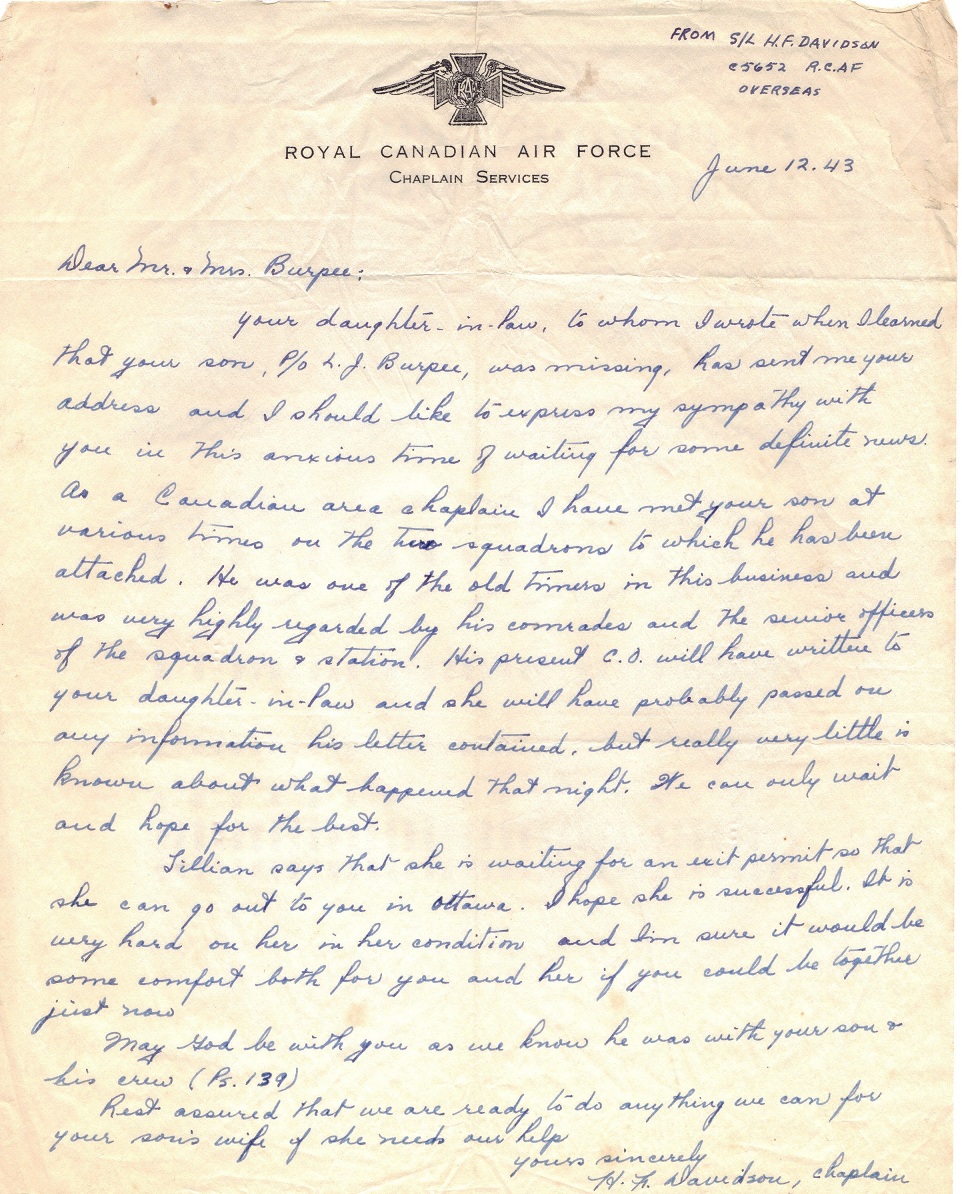 FROM S/L H.F. DAVIDSON
C5652 R.C.AF
OVERSEAS
ROYAL CANADIAN AIR FORCE
CHAPLAIN SERVICES
June 12. 43
Dear Mr. & Mrs. Burpee:
Your daughter-in-law, to whom I wrote when I learned
that your son, P/O L. J. Burpee, was missing, has sent me your
address and I should like to express my sympathy with
you in this anxious time of waiting for some definite news.
As a Canadian area chaplain I have met your son at
various times on the two squadrons to which he has been
attached. He was one of the old timers in this business and
was very highly regarded by his comrades and the senior officers
of the squadron & station. His present C.O. will have written to
your daughter-in-law and she will have probably passed on
any information his letter contained, but really very little is
known about what happened that night. We can only wait
and hope for the best.
Lillian says that she is waiting for an exit permit so that
she can go out to you in Ottawa. I hope she is successful. It is
very hard on her in her condition and I'm sure it would be
some comfort both for you and her if you could be together
just now
May God be with you as we know he was with your son &
his crew (Ps. 139)
Rest assured that we are ready to do anything we can for
your son's wife if she needs our help
Yours sincerely
H. F. Davidson, Chaplain